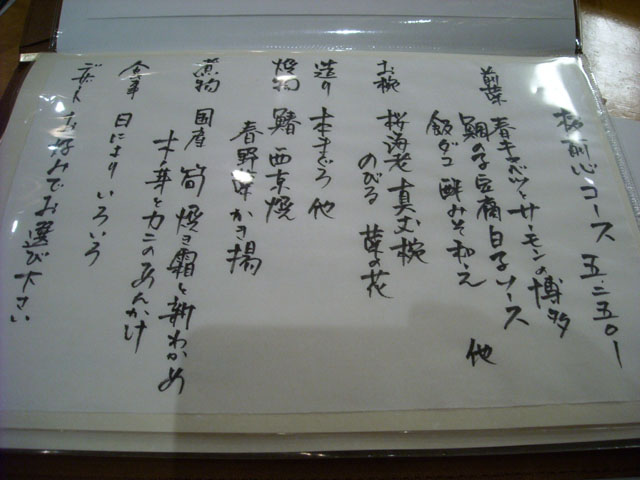 桜前心コース 五.二五〇ー
前菜 春キャベツとサーモンの博多
鯛の子豆腐白子ソース
飯ダコ 酢みそ和え 他
お椀 桜海老真丈椀
のびる 菜の花
造り 本まぐろ 他
焼物 鰆 西京焼
春野菜かき揚
煮物 国産 筍 焼き霜と新わかめ
本芽とカニのあんかけ
食事 日により いろいろ
デザート お好みでお選び下さい